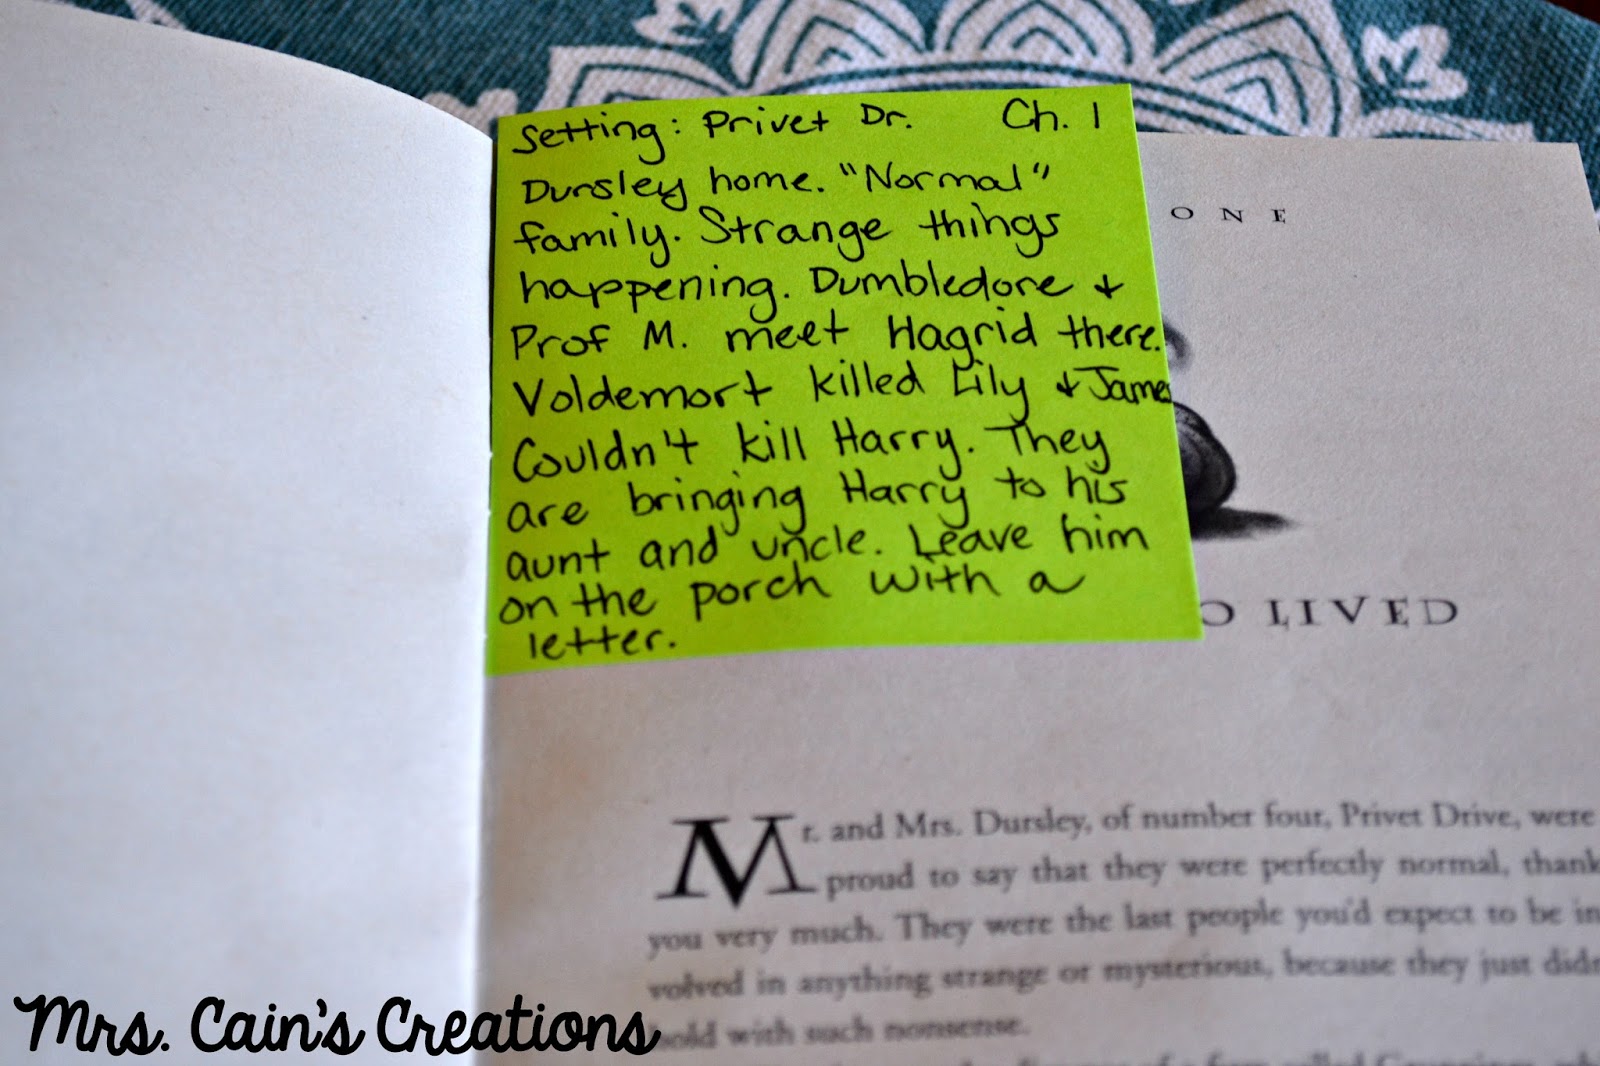 Setting: Privet Dr. Ch. 1
Dursley home. "Normal"
family. Strange things
happening. Dumbledore &
Prof M. meet Hagrid there.
Voldemort killed Lily & James
Couldn't kill Harry. They
are bringing Harry to his
aunt and uncle. Leave him
on the porch with a
letter.
ONE
O LIVED
Mr. and Mrs. Dursley, of number four, Privet Drive, were
proud to say that they were perfectly normal, thank
you very much. They were the last people you'd expect to be in
volved in anything strange or mysterious, because they just didn
hold with such nonsense.
Mrs. Cain's Creations